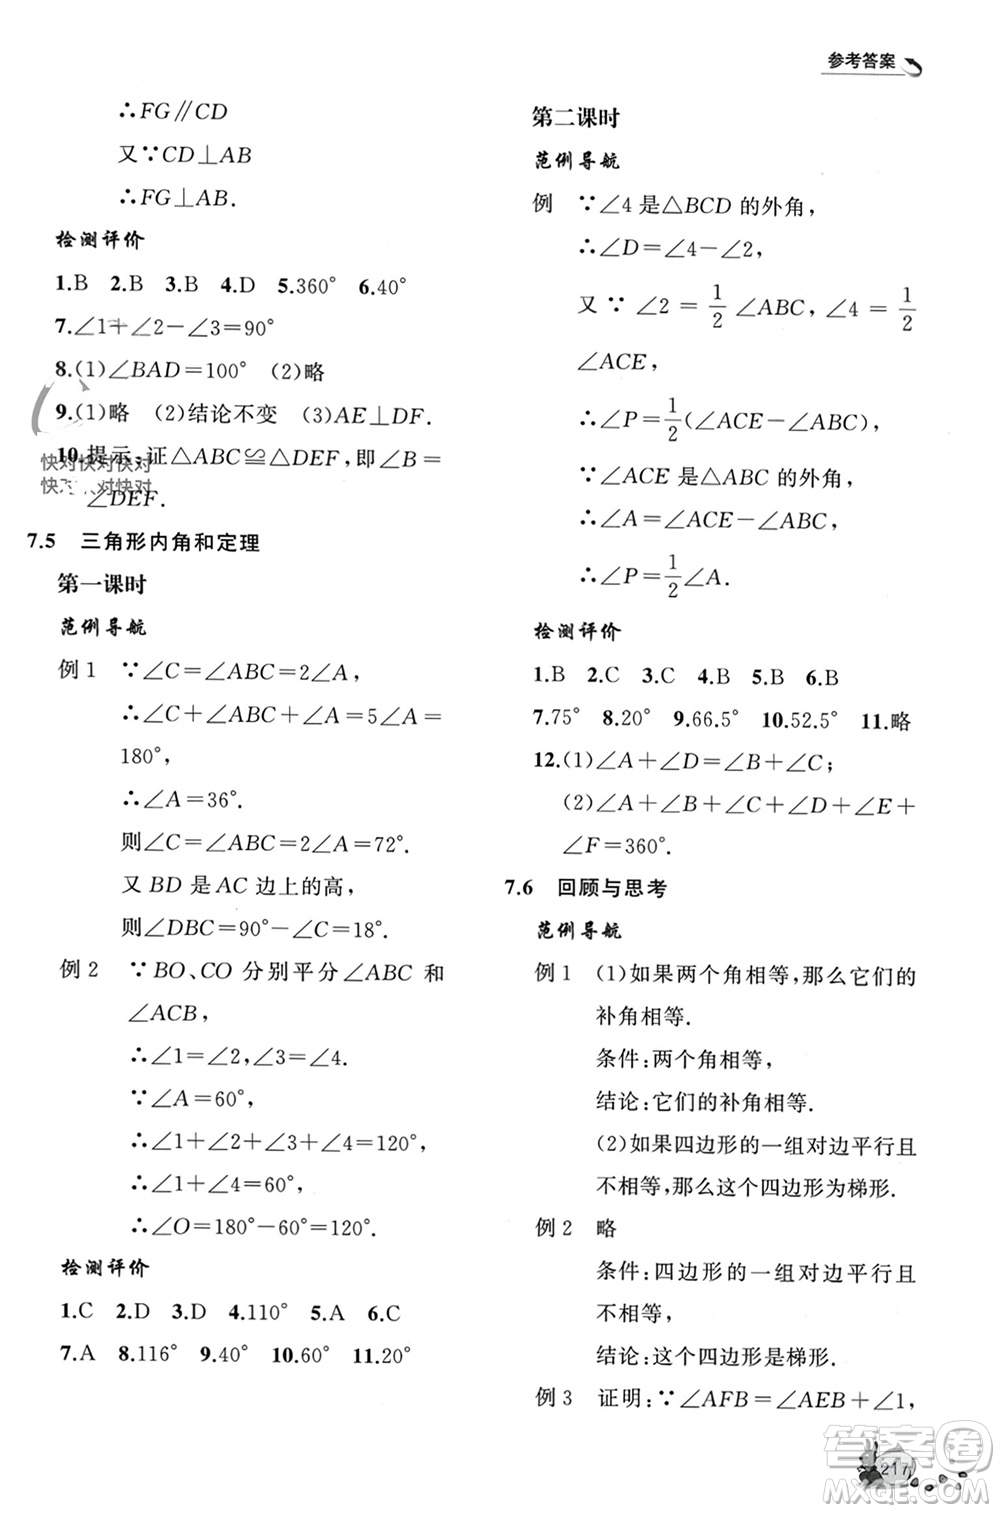 参考答案
∴FG∥CD
又∵CD⊥AB
∴FG⊥AB.
检测评价
1.B 2.B 3.B 4.D 5.360° 6.40°
7.∠1+∠2-∠3=90°
8.(1)∠BAD=100° (2)略
9.(1)略 (2)结论不变 (3)AE⊥DF.
10.提示:证△ABC≌△DEF,即∠B=
∠DEF.
快对快对快对
快 对快对
7.5 三角形内角和定理
第一课时
范例导航
例1 ∵∠C=∠ABC=2∠A,
∴∠C+∠ABC+∠A=5∠A=
180°,
∴∠A=36°.
则∠C=∠ABC=2∠A=72°.
又BD是AC边上的高,
则∠DBC=90°-∠C=18°.
例2 ∵BO、CO分别平分∠ABC和
∠ACB,
∴∠1=∠2,∠3=∠4.
∵∠A=60°,
∴∠1+∠2+∠3+∠4=120°,
∴∠1+∠4=60°,
∴∠O=180°-60°=120°.
检测评价
1.C 2.D 3.D 4.110° 5.A 6.C
7.A 8.116° 9.40° 10.60° 11.20°
第二课时
范例导航
例 ∵∠4是△BCD的外角,
∴∠D=∠4-∠2,
又∵∠2=1/2∠ABC,∠4=1/2
∠ACE,
∴∠P=1/2(∠ACE-∠ABC),
∵∠ACE是△ABC的外角,
∴∠A=∠ACE-∠ABC,
∴∠P=1/2∠A.
检测评价
1.B 2.C 3.C 4.B 5.B 6.B
7.75° 8.20° 9.66.5° 10.52.5° 11.略
12.(1)∠A+∠D=∠B+∠C;
(2)∠A+∠B+∠C+∠D+∠E+
∠F=360°.
7.6 回顾与思考
范例导航
例1 (1)如果两个角相等,那么它们的
补角相等.
条件:两个角相等,
结论:它们的补角相等.
(2)如果四边形的一组对边平行且
不相等,那么这个四边形为梯形.
例2 略
条件:四边形的一组对边平行且
不相等,
结论:这个四边形是梯形.
例3 证明:∵∠AFB=∠AEB+∠1,
217
答案圈
MXQE.COM